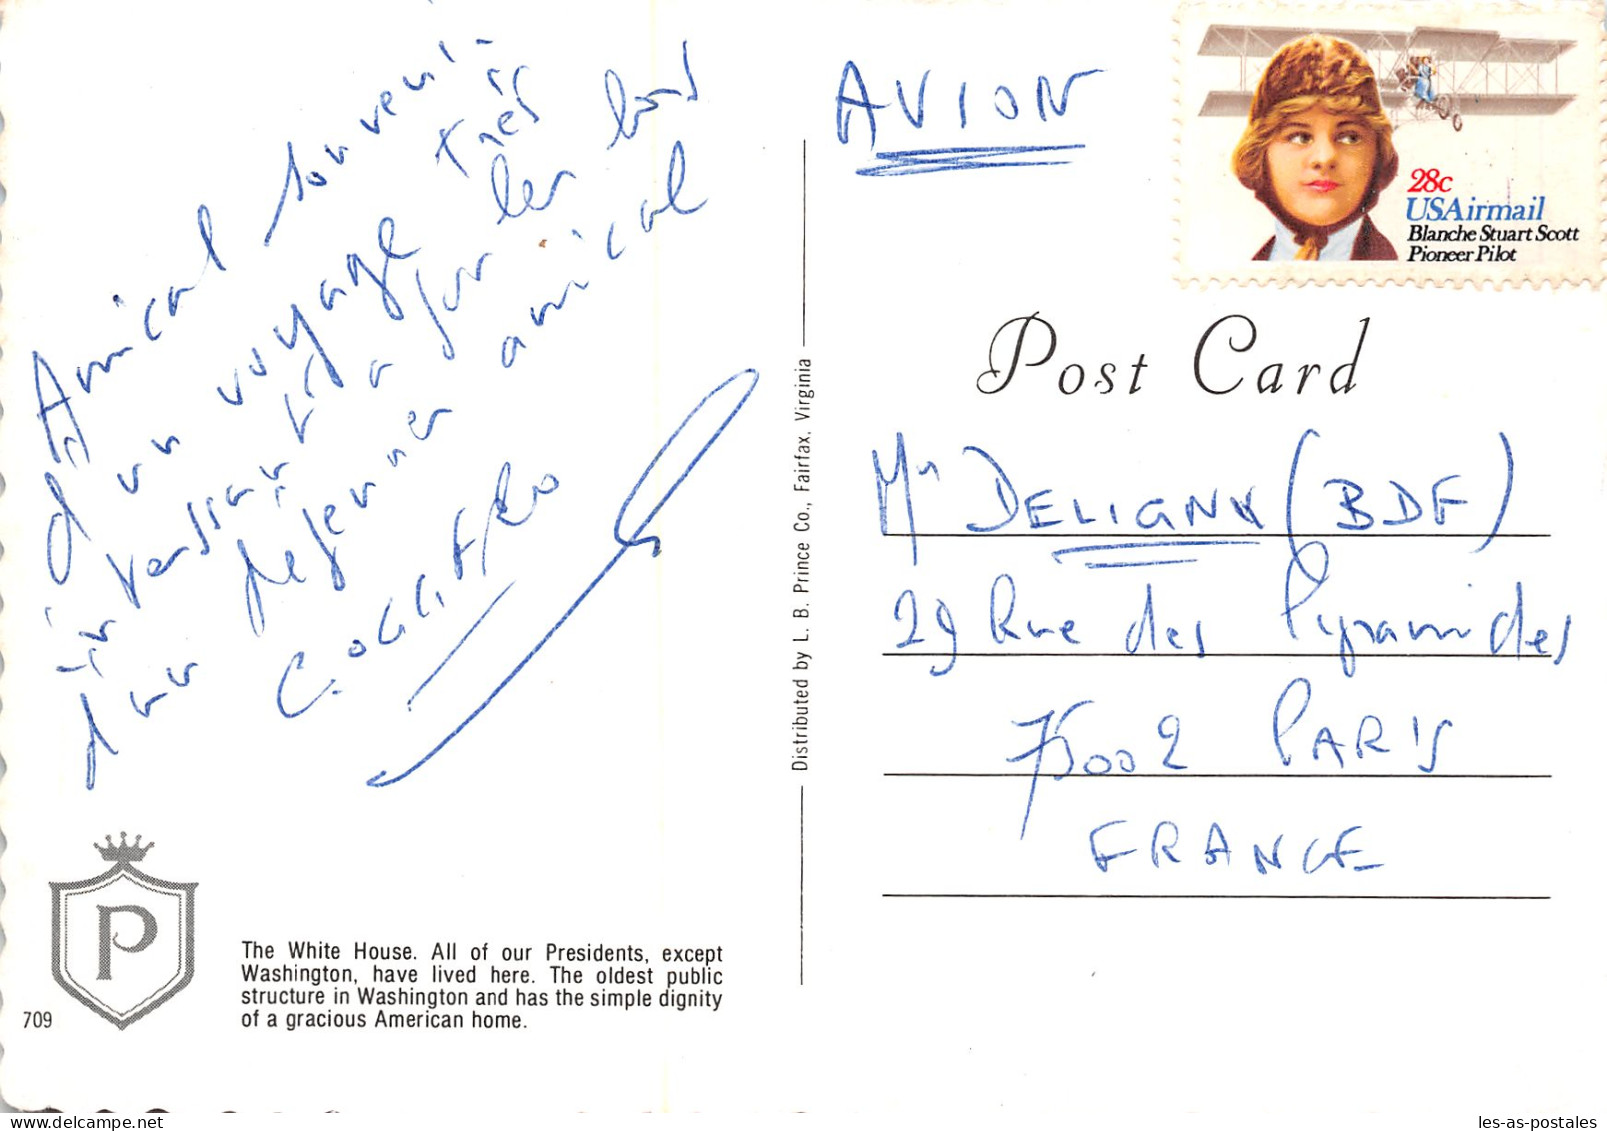 Amical souveni-
d'un voyage très
intéressant
d'un déjeuner amical
AVION
28c
USAirmail
Blanche Stuart Scott
Pioneer Pilot
Post Card
Mr DELIGNY (BDF)
29 Rue des Pyramides
75002 PARIS
FRANCE
Distributed by L. B. Prince Co., Fairfax, Virginia
P
709
The White House. All of our Presidents, except
Washington, have lived here. The oldest public
structure in Washington and has the simple dignity
of a gracious American home.
les-as-postales